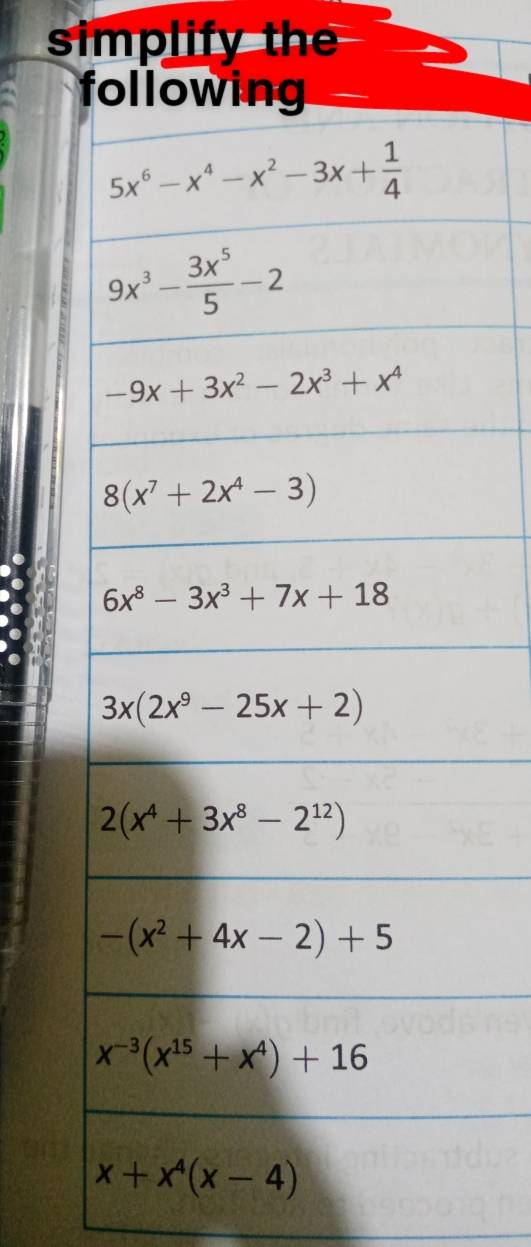 simplify the
following
5x⁶ − x⁴ − x² − 3x + 1/4
9x³ − 3x⁵/5 − 2
−9x + 3x² − 2x³ + x⁴
8(x⁷ + 2x⁴ − 3)
6x⁸ − 3x³ + 7x + 18
3x(2x⁹ − 25x + 2)
2(x⁴ + 3x⁸ − 2¹²)
−(x² + 4x − 2) + 5
x⁻³(x¹⁵ + x⁴) + 16
x + x⁴(x − 4)